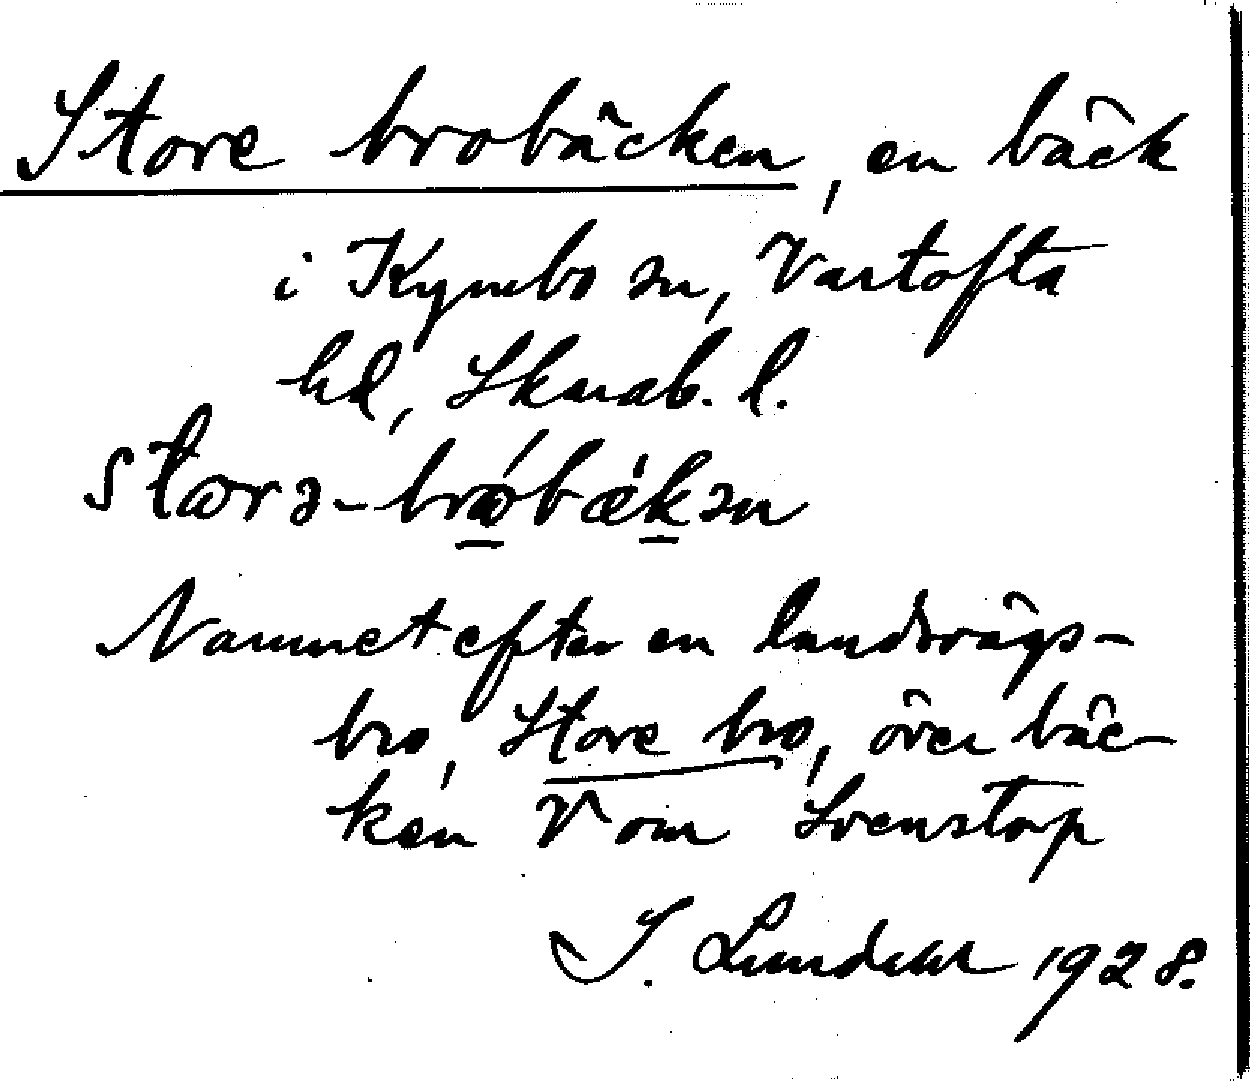 Store brobäcken, en bäck
i Kymbo sn, Vartofta
hd, Skarab. l.
stɷrə-brɷ́bæ̀kən
Namnet efter en landsvägs-
bro, Store bro, över bäc-
ken V om Svenstorp
I. Lundahl 1928.